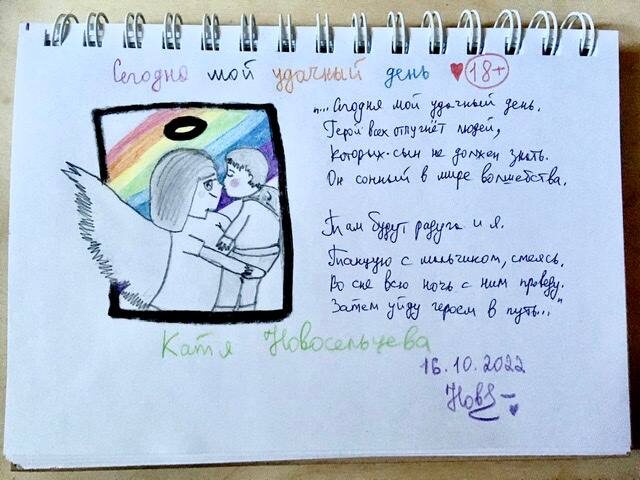 Сегодня мой удачный день ♥ 18+
"...Сегодня мой удачный день.
Герой всех отпугнёт людей,
которых сын не должен знать.
Он сонный в мире волшебства.
Там будут радуга и я.
Танцую с мальчиком, смеясь,
Во сне всю ночь с ним проведу.
Затем уйду героем в путь..."
Катя Новосельцева
16.10.2022
НовS